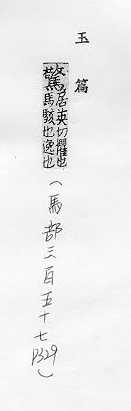 玉篇
驚居英切懼也
馬駭也逸也
(馬部三百五十七
P329)